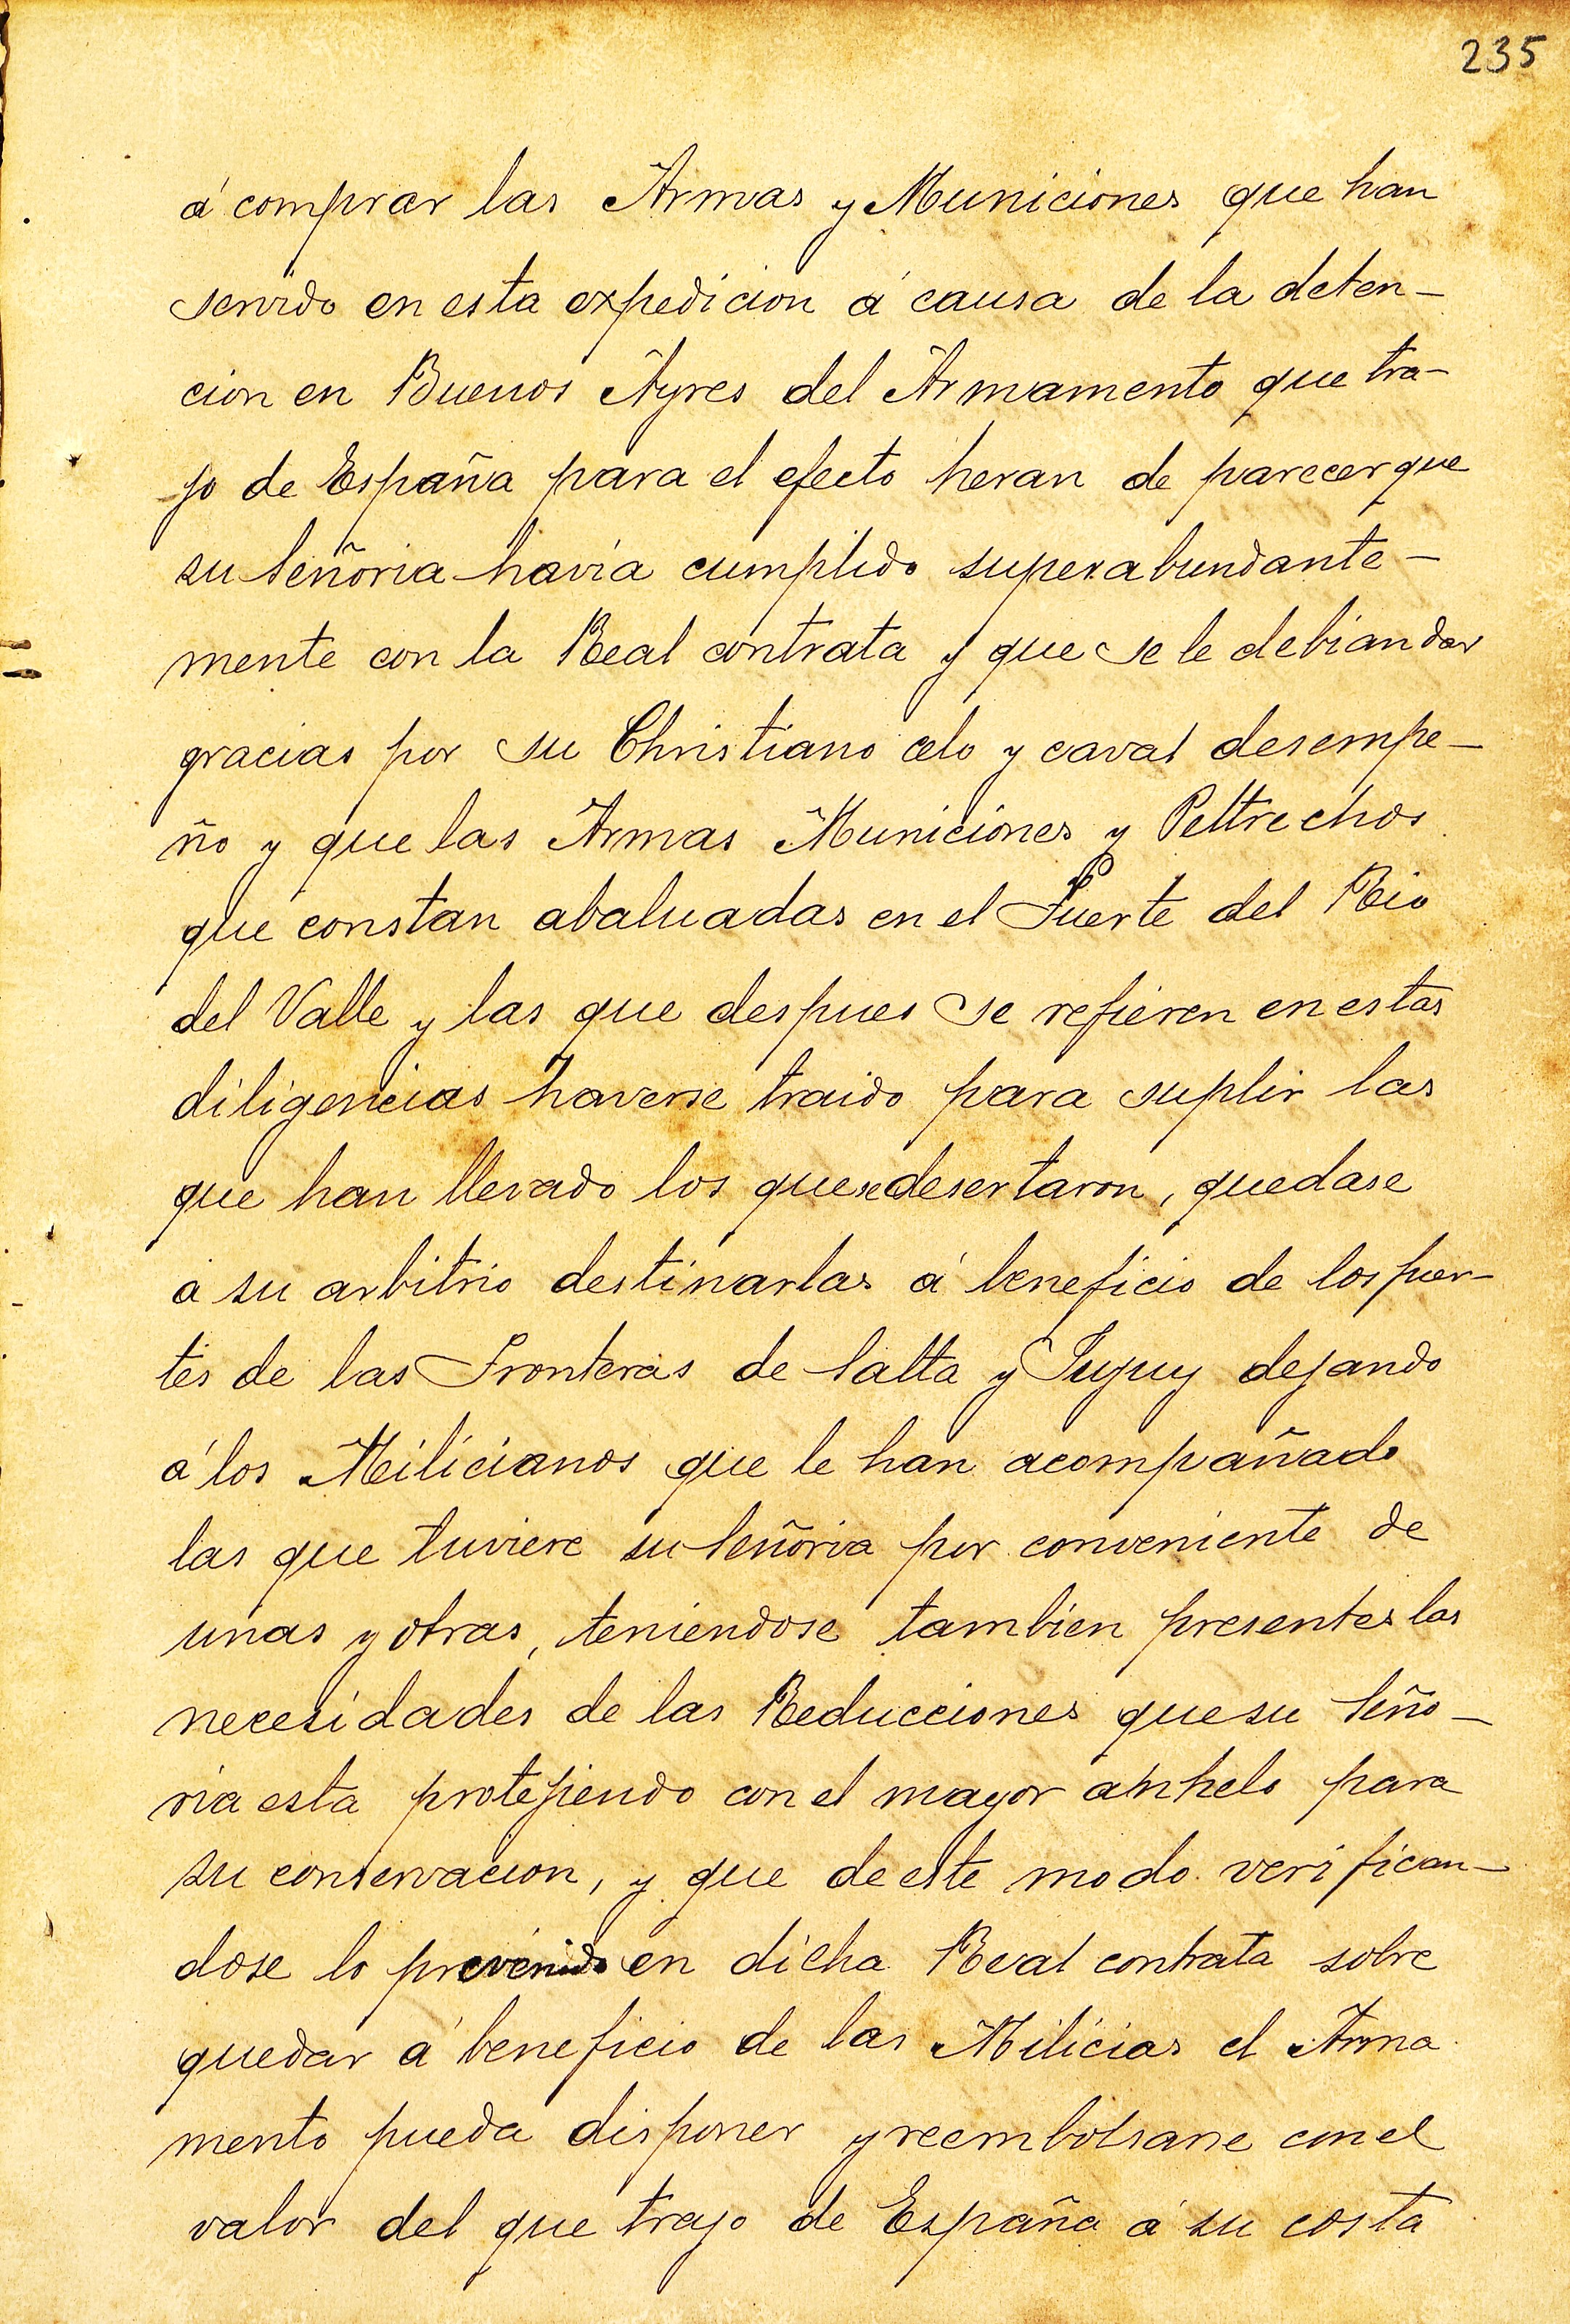 235
á comprar las Armas y Municiones que han
servido en esta expedicion á causa de la deten-
cion en Buenos Ayres del Armamento que tra-
jo de España para el efecto heran de parecer que
su Señoria havia cumplido superabundante-
mente con la Real contrata y que se le debian dar
gracias por su Christiano celo y caval desempe-
ño y que las Armas Municiones y Peltrechos
que constan abaluadas en el Fuerte del Rio
del Valle y las que despues se refieren en estas
diligencias haverse traido para suplir las
que han llevado los que se desertaron, quedase
a su arbitrio destinarlas á beneficio de los fuer-
tes de las Fronteras de Salta y Jujuy dejando
á los Milicianos que le han acompañado
las que tuviere su Señoria por conveniente de
unas y otras, teniendose tambien presentes las
necesidades de las Reducciones que su Seño-
ria esta protejiendo con el mayor anhelo para
su conservacion, y que de este modo verifican-
dose lo prevenido en dicha Real contrata sobre
quedar á beneficio de las Milicias el Arma
mento pueda disponer y reembolsarse con el
valor del que trajo de España á su costa